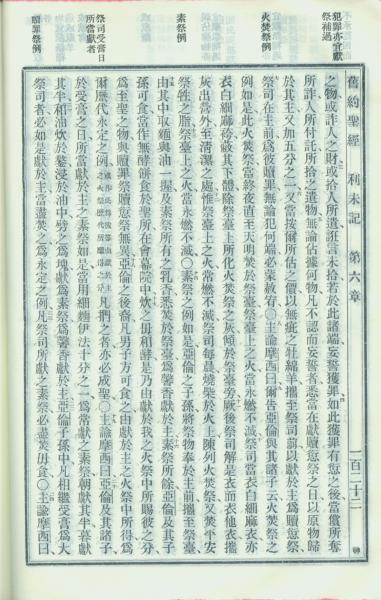 犯罪亦宜獻
祭補過
火焚祭例
素祭例
祭司受膏日
所當獻者
贖罪祭例
舊約聖經 利未記 第六章 一百二十二
之物或詐人之財或拾人所遺誑言未拾若於此諸端妄誓獲罪如此獲罪有愆之後當償所奪
所詐人所付託所拾之遺物無論估據何物凡不認而妄誓者悉當在獻贖愆祭之日以原物歸
於其主又加五分之一又當按爾所估之價以無疵之牡綿羊攜至祭司前以獻於主爲贖愆祭
祭司在主前爲彼贖罪無論犯何端必蒙赦宥〇主諭摩西曰爾告亞倫與其諸子云火焚祭之
例如是此火焚祭當終夜直至天明焚於祭臺祭臺上之火當永燃不滅祭司當衣白細麻衣亦
衣白細麻袴蔽其下體除祭臺上所化火焚祭之灰傾於祭臺旁厥後祭司解是衣而衣他衣攜
灰出營外至清潔之處惟祭臺上之火常燃不滅祭司每晨燒柴於火上陳列火焚祭又焚平安
祭牲之脂祭臺上之火當永燃不滅〇素祭之例如是亞倫之子孫將祭物奉於主前攜至祭臺
由其中取麵與油一握及素祭所有之乳香悉焚於祭臺爲馨香獻於主素祭所餘亞倫及其子
孫可食當作無酵餅食於聖所在會幕院中炊之毋和酵是乃由獻於我之火祭中所賜彼之分
爲至聖之物與贖罪祭贖愆祭無異亞倫之後裔凡男子方可食之由獻於主之火祭中所得爲
爾歷代永定之例凡捫之者亦必成聖〇主諭摩西曰亞倫及其子
於受膏之日所當獻於主之素祭如是當用細麵伊法十分之一爲常獻之素祭朝獻其半暮獻
其半和油炊於鏊浸於油中劈之爲塊獻爲素祭爲馨香獻於主亞倫子孫中凡相繼受膏爲大
祭司者必如是獻於主當盡焚之爲永定之例凡祭司所獻之素祭必盡焚毋食〇主諭摩西曰